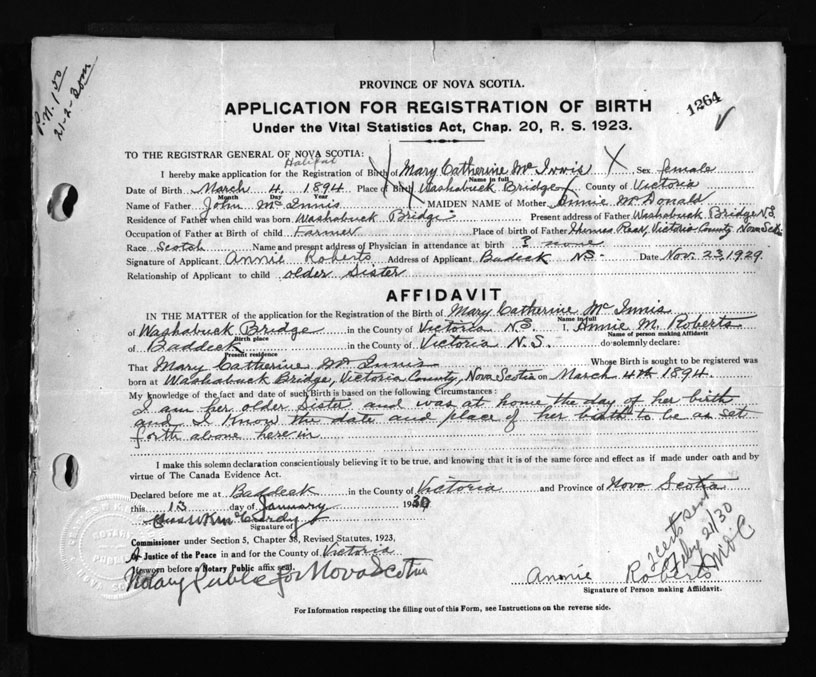 P.N. 1 50
21-2-30
PROVINCE OF NOVA SCOTIA.
APPLICATION FOR REGISTRATION OF BIRTH
1264
Under the Vital Statistics Act, Chap. 20, R. S. 1923.
TO THE REGISTRAR GENERAL OF NOVA SCOTIA:
Halifax
I hereby make application for the Registration of Birth of Mary Catherine Mc Innis Sex female
Name in full
Date of Birth March 4, 1894 Place of Birth Washabuck Bridge County of Victoria
Month Day Year
Name of Father John Mc Innis MAIDEN NAME of Mother Annie Mc Donald
Residence of Father when child was born Washabuck Bridge Present address of Father Washabuck Bridge N.S.
Occupation of Father at Birth of child Farmer Place of birth of Father Victoria County Nova Scotia
Race Scotch Name and present address of Physician in attendance at birth ? none
Signature of Applicant Annie Roberts Address of Applicant Badeck NS Date Nov. 23, 1929.
Relationship of Applicant to child older Sister
AFFIDAVIT
IN THE MATTER of the application for the Registration of the Birth of Mary Catherine Mc Innis
Name in full
of Washabuck Bridge in the County of Victoria N.S. I, Annie M. Roberts
Birth place Name of person making Affidavit
of Baddeck in the County of Victoria N.S. do solemnly declare:
Present residence
That Mary Catherine Mc Innis Whose Birth is sought to be registered was
born at Washabuck Bridge, Victoria County, Nova Scotia on March 4th 1894.
My knowledge of the fact and date of such Birth is based on the following Circumstances:
I am her older Sister and was at home the day of her birth
and I know the date and place of her birth to be as set
forth above herein
I make this solemn declaration conscientiously believing it to be true, and knowing that it is of the same force and effect as if made under oath and by
virtue of The Canada Evidence Act.
Declared before me at Baddeck in the County of Victoria and Province of Nova Scotia
this 13 day of January 1930
Signature of
Commissioner under Section 5, Chapter 38, Revised Statutes, 1923,
A Justice of the Peace in and for the County of Victoria
If sworn before a Notary Public affix seal.
Notary Public for Nova Scotia
Annie Roberts
Certs sent
Feby 21/30
Signature of Person making Affidavit.
For Information respecting the filling out of this Form, see Instructions on the reverse side.